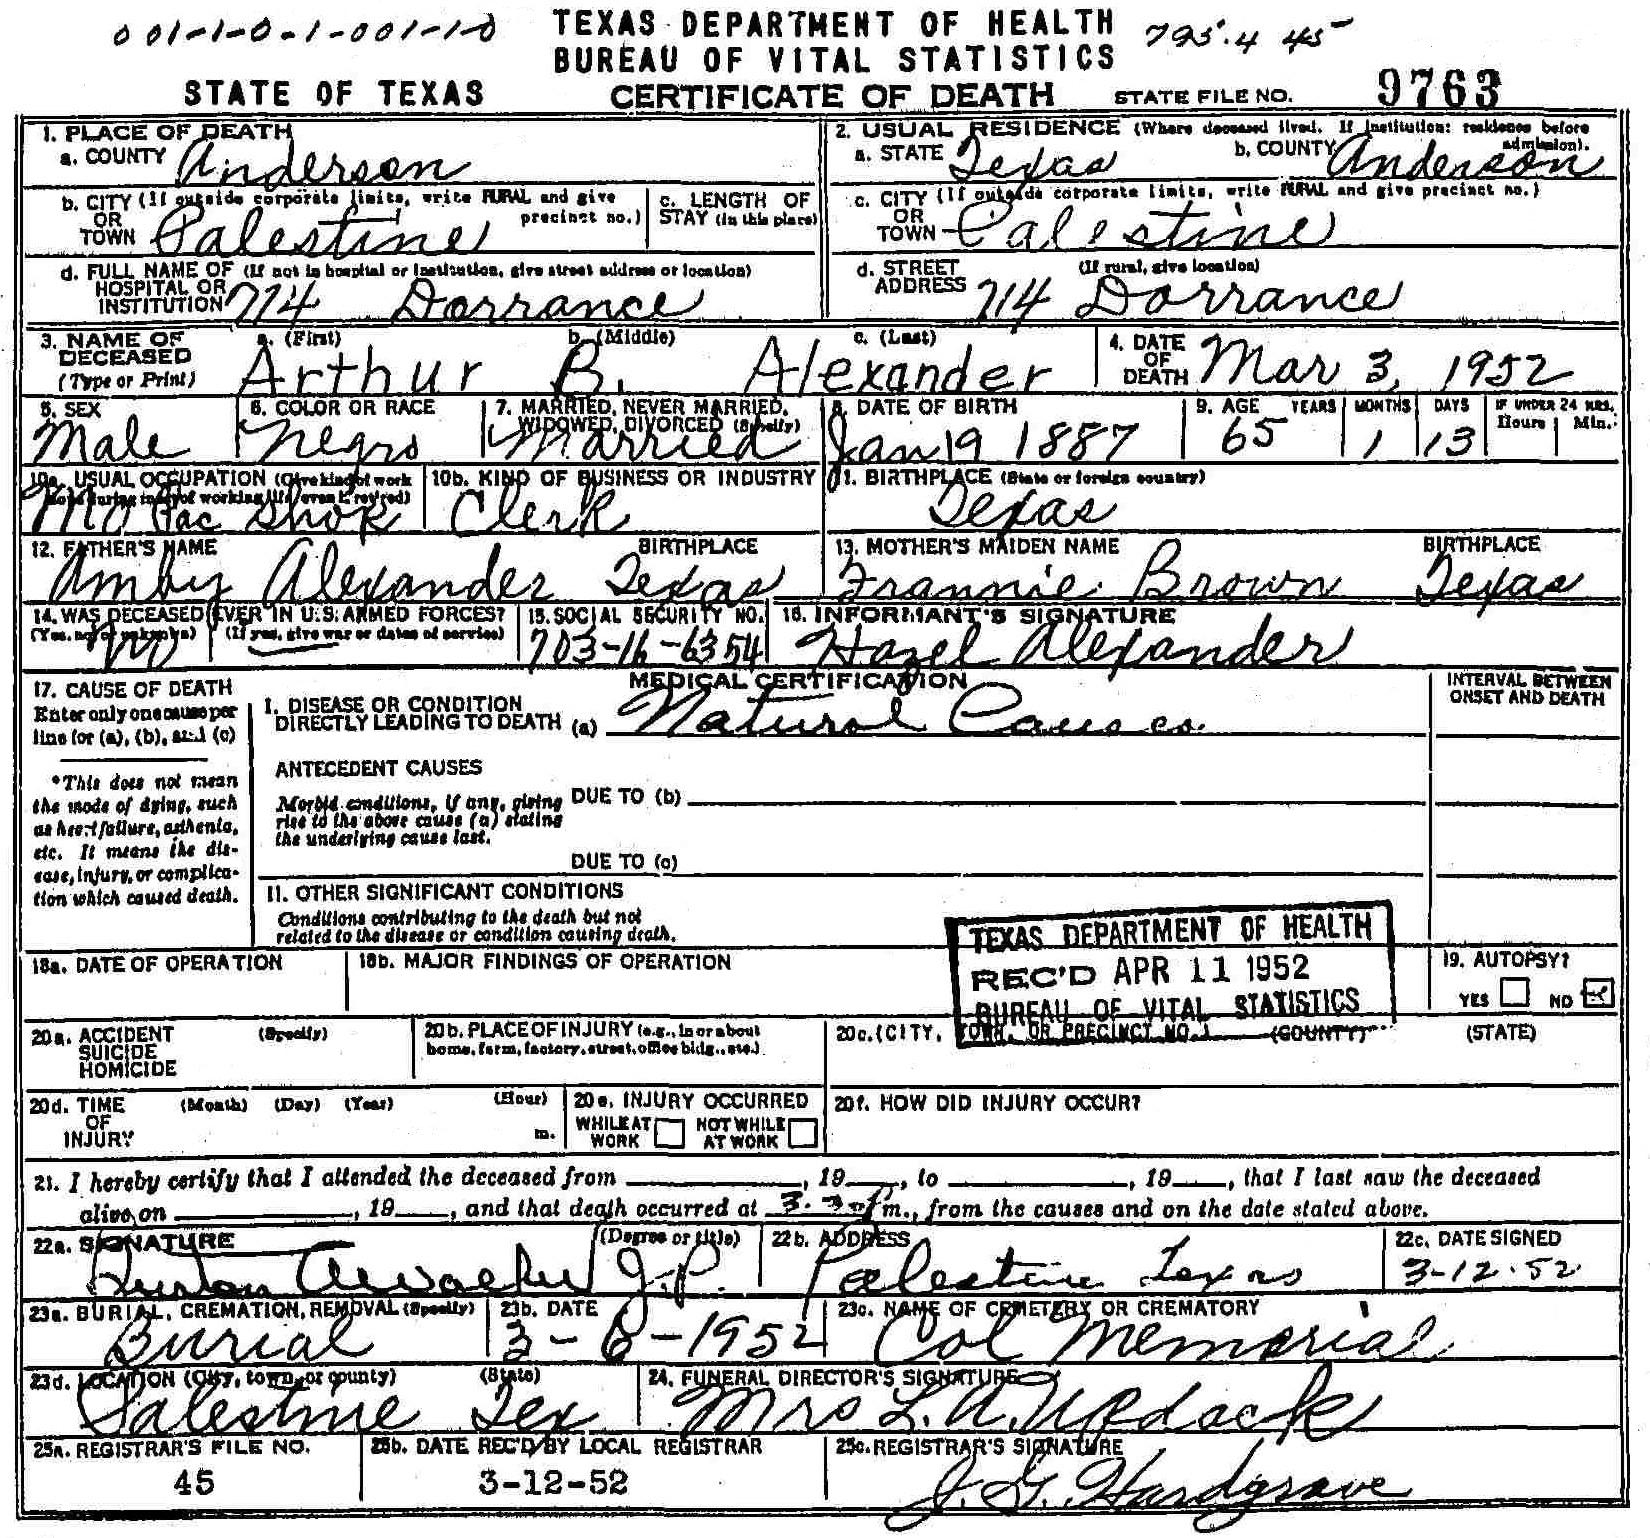 001-1-0-1-001-1-0
TEXAS DEPARTMENT OF HEALTH
795.4 45
BUREAU OF VITAL STATISTICS
STATE OF TEXAS CERTIFICATE OF DEATH STATE FILE NO. 9763
1. PLACE OF DEATH
a. COUNTY Anderson
2. USUAL RESIDENCE (Where deceased lived. If institution: residence before admission).
a. STATE Texas b. COUNTY Anderson
b. CITY (If outside corporate limits, write RURAL and give precinct no.)
OR
TOWN Palestine
c. LENGTH OF
STAY (in this place)
c. CITY (If outside corporate limits, write RURAL and give precinct no.)
OR
TOWN Palestine
d. FULL NAME OF (If not in hospital or institution, give street address or location)
HOSPITAL OR
INSTITUTION 714 Dorrance
d. STREET (If rural, give location)
ADDRESS 714 Dorrance
3. NAME OF
DECEASED
(Type or Print)
a. (First) b. (Middle) c. (Last)
Arthur B. Alexander
4. DATE
OF
DEATH Mar 3, 1952
5. SEX
Male
6. COLOR OR RACE
Negro
7. MARRIED, NEVER MARRIED,
WIDOWED, DIVORCED (Specify)
Married
8. DATE OF BIRTH
Jan 19 1887
9. AGE YEARS MONTHS DAYS IF UNDER 24 HRS.
Hours Min.
65 1 13
10a. USUAL OCCUPATION (Give kind of work
done during most of working life, even if retired)
Mo Pac Shop
10b. KIND OF BUSINESS OR INDUSTRY
Clerk
11. BIRTHPLACE (State or foreign country)
Texas
12. FATHER'S NAME BIRTHPLACE
Amby Alexander Texas
13. MOTHER'S MAIDEN NAME BIRTHPLACE
Frannie Brown Texas
14. WAS DECEASED EVER IN U.S. ARMED FORCES?
(Yes, no, or unknown) (If yes, give war or dates of service)
No
15. SOCIAL SECURITY NO.
703-16-6354
16. INFORMANT'S SIGNATURE
Hazel Alexander
MEDICAL CERTIFICATION
17. CAUSE OF DEATH
Enter only one cause per
line for (a), (b), and (c)
*This does not mean
the mode of dying, such
as heart failure, asthenia,
etc. It means the dis-
ease, injury, or complica-
tion which caused death.
I. DISEASE OR CONDITION
DIRECTLY LEADING TO DEATH (a) Natural Causes.
INTERVAL BETWEEN
ONSET AND DEATH
ANTECEDENT CAUSES
Morbid conditions, if any, giving
rise to the above cause (a) stating
the underlying cause last.
DUE TO (b)
DUE TO (c)
II. OTHER SIGNIFICANT CONDITIONS
Conditions contributing to the death but not
related to the disease or condition causing death.
TEXAS DEPARTMENT OF HEALTH
REC'D APR 11 1952
BUREAU OF VITAL STATISTICS
18a. DATE OF OPERATION
18b. MAJOR FINDINGS OF OPERATION
19. AUTOPSY?
YES NO
20a. ACCIDENT (Specify)
SUICIDE
HOMICIDE
20b. PLACE OF INJURY (e.g., in or about
home, farm, factory, street, office bldg., etc.)
20c. (CITY, TOWN, OR PRECINCT NO.) (COUNTY) (STATE)
20d. TIME (Month) (Day) (Year) (Hour)
OF
INJURY m.
20e. INJURY OCCURRED
WHILE AT
WORK
NOT WHILE
AT WORK
20f. HOW DID INJURY OCCUR?
21. I hereby certify that I attended the deceased from , 19 , to , 19 , that I last saw the deceased
alive on , 19 , and that death occurred at m., from the causes and on the date stated above.
22a. SIGNATURE (Degree or title)
J.P.
22b. ADDRESS
Palestine Texas
22c. DATE SIGNED
3-12-52
23a. BURIAL, CREMATION, REMOVAL (Specify)
Burial
23b. DATE
3-6-1952
23c. NAME OF CEMETERY OR CREMATORY
Col Memorial
23d. LOCATION (City, town, or county) (State)
Palestine Tex
24. FUNERAL DIRECTOR'S SIGNATURE
Mrs L. A. Updock
25a. REGISTRAR'S FILE NO.
45
25b. DATE REC'D BY LOCAL REGISTRAR
3-12-52
25c. REGISTRAR'S SIGNATURE
J. G. Hardgrave